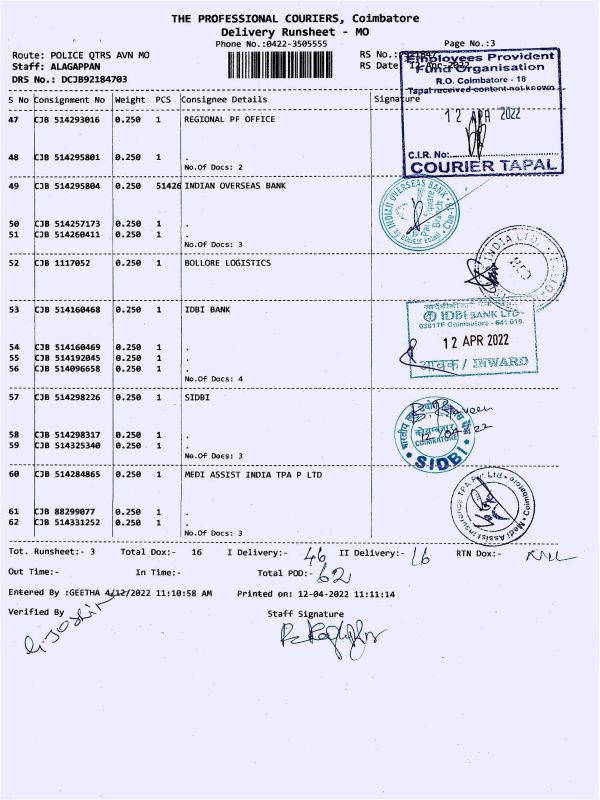 THE PROFESSIONAL COURIERS, Coimbatore
Delivery Runsheet - MO
Phone No.:0422-3505555
Page No.:3
Route: POLICE QTRS AVN MO
RS No.:
Staff: ALAGAPPAN
RS Date: 12-Apr-2022
DRS No.: DCJB92184703
Employees Provident
Fund Organisation
R.O. Coimbatore - 18
Tapal received content not known
12 APR 2022
C.I.R. No:
COURIER TAPAL
S No Consignment No Weight PCS Consignee Details Signature
47 CJB 514293016 0.250 1 REGIONAL PF OFFICE
48 CJB 514295801 0.250 1 .
No.Of Docs: 2
49 CJB 514295804 0.250 51426 INDIAN OVERSEAS BANK
INDIAN OVERSEAS BANK
50 CJB 514257173 0.250 1 .
51 CJB 514260411 0.250 1 .
No.Of Docs: 3
52 CJB 1117052 0.250 1 BOLLORE LOGISTICS
INDIA LTD.
53 CJB 514160468 0.250 1 IDBI BANK
IDBI BANK LTD
Coimbatore - 641 018.
12 APR 2022
आवक / INWARD
54 CJB 514160469 0.250 1 .
55 CJB 514192045 0.250 1 .
56 CJB 514096658 0.250 1 .
No.Of Docs: 4
57 CJB 514298226 0.250 1 SIDBI
COIMBATORE
SIDBI
58 CJB 514298317 0.250 1 .
59 CJB 514325340 0.250 1 .
No.Of Docs: 3
60 CJB 514284865 0.250 1 MEDI ASSIST INDIA TPA P LTD
Medi Assist Insurance TPA Pvt Ltd • Coimbatore
61 CJB 88299077 0.250 1 .
62 CJB 514331252 0.250 1 .
No.Of Docs: 3
Tot. Runsheet:- 3 Total Dox:- 16 I Delivery:- 46 II Delivery:- 16 RTN Dox:-
Out Time:- In Time:- Total POD:- 62
Entered By :GEETHA 4/12/2022 11:10:58 AM Printed on: 12-04-2022 11:11:14
Verified By Staff Signature